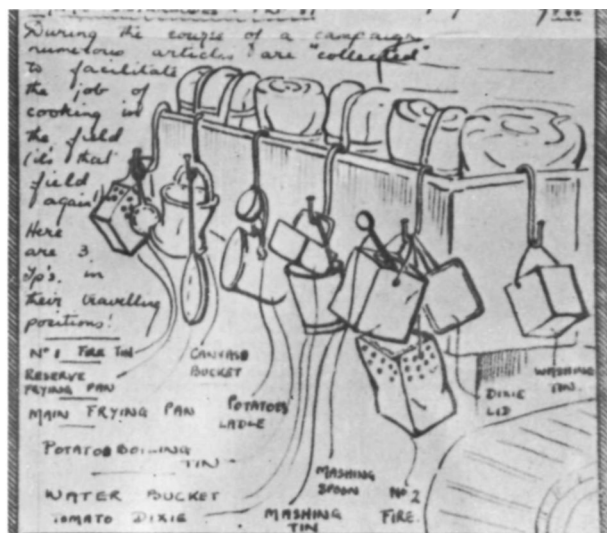 During the course of a campaign
numerous articles are "collected"
to facilitate
the job of
cooking in
the field
(it's that
field
again!)
Here
are 3
Tp's. in
their travelling
positions!
No 1 FIRE TIN
RESERVE
FRYING PAN
MAIN FRYING PAN
CANVASS
BUCKET
POTATOE
LADLE
POTATOE BOILING
TIN
WATER BUCKET
TOMATO DIXIE
MASHING
TIN
MASHING
SPOON
No 2
FIRE.
DIXIE
LID
WASHING
TIN.